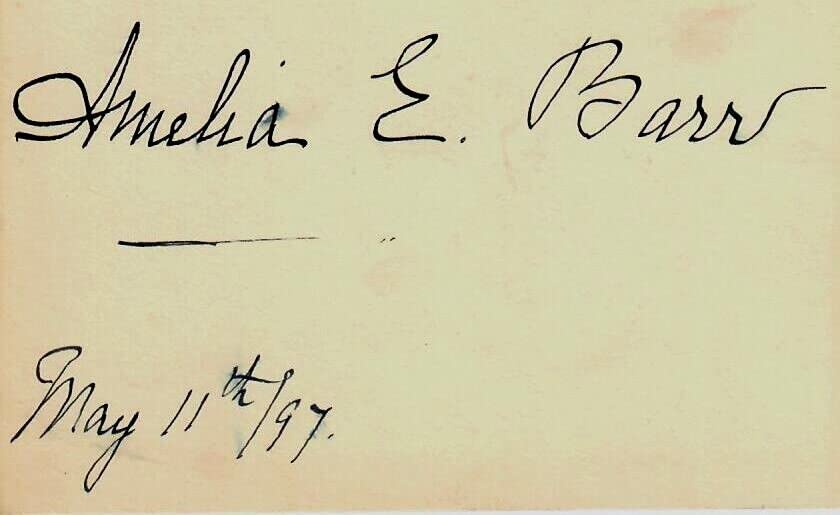 Amelia E. Barr
May 11th/97.